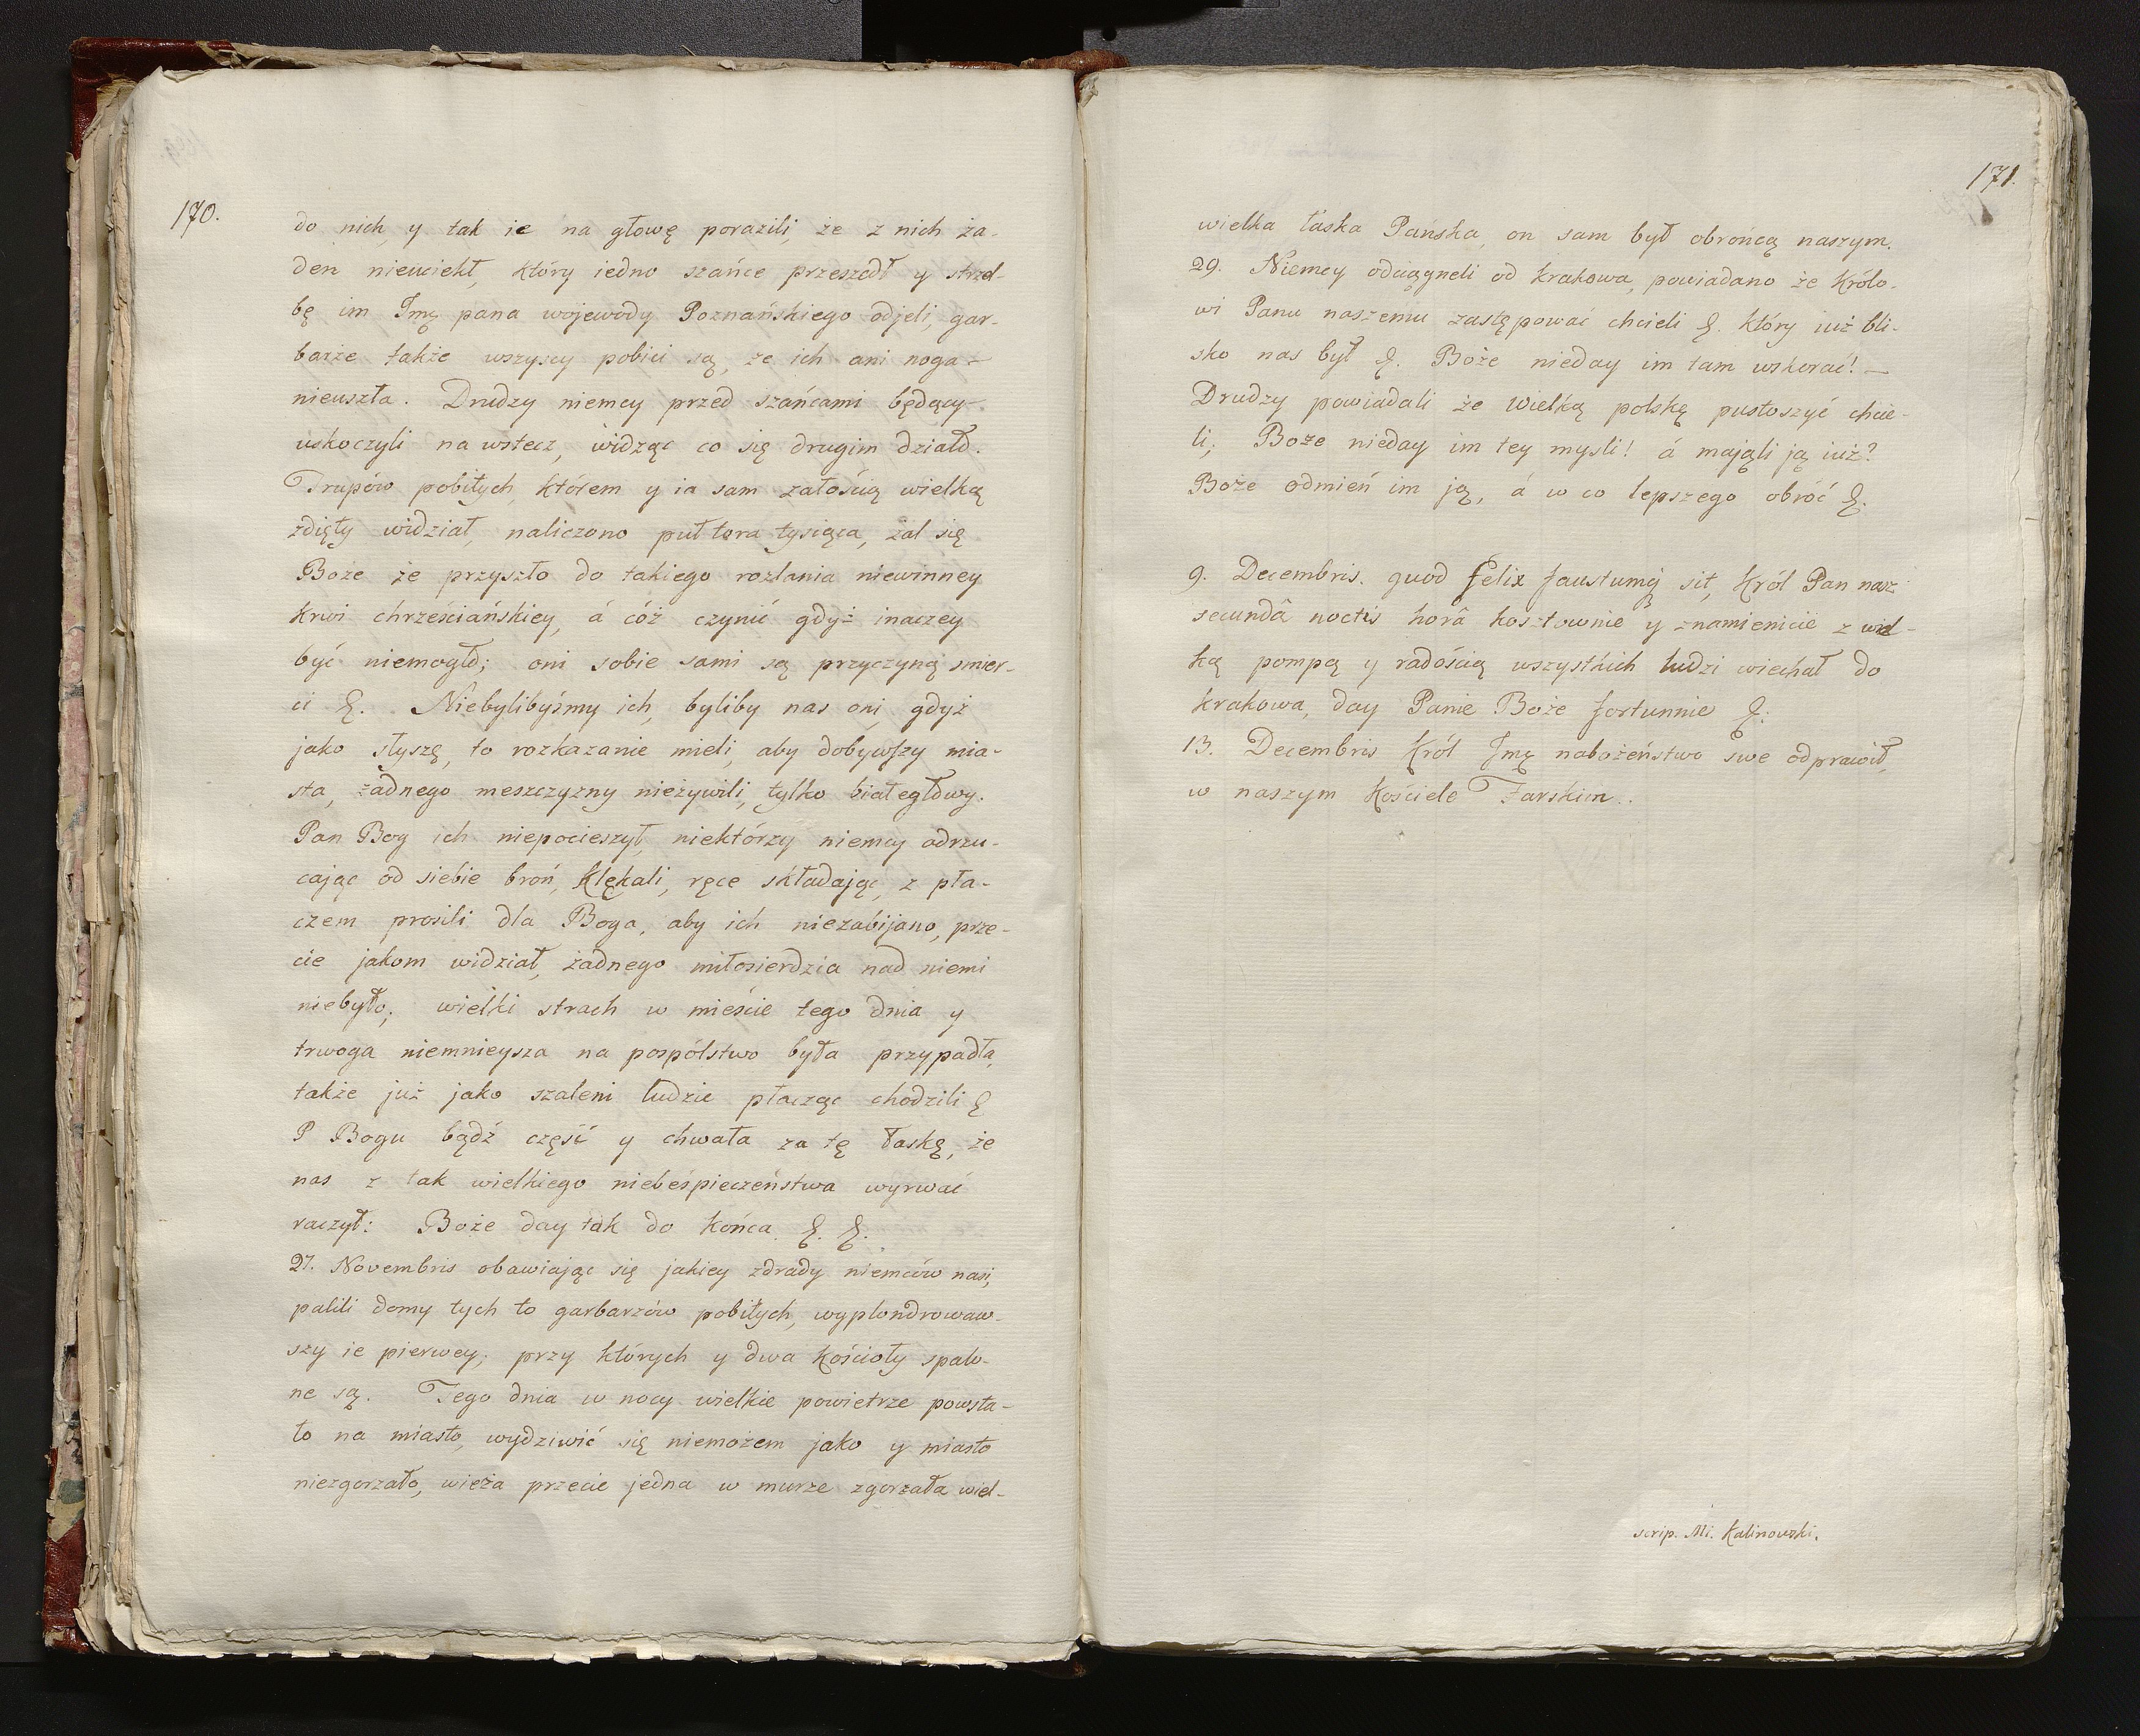 170.
do nich, y tak ie na głowę porazili, że z nich ża-
den nieuciekł, który iedno szańce przeszedł y strzel-
bę im Jmę pana wojewody Poznańskiego odjeli, gar-
barże także wszyscy pobici są, że ich ani noga -
nieuszła. Drudzy niemcy przed szańcami będący -
uskoczyli na wstecz, widząc co się drugim działo.
Trupów pobitych, którem y ia sam żałością wielką
zdięty widział, naliczono pułtora tysiąca, żal się
Boże że przyszło do takiego rozlania niewinney
krwi chrześciańskiey, á cóż czynić gdyż inaczey
być niemogło; oni sobie sami są przyczyną śmier-
ci &. Niebylibyśmy ich, byliby nas oni, gdyż
jako słyszę, to rozkazanie mieli, aby dobywszy mia-
sta, żadnego meszczyzny nieżywili, tylko białegłowy.
Pan Bog ich niepocieszył, niektórzy niemcy odrzu-
cając od siebie broń, klękali, ręce składając, z pła-
czem prosili dla Boga, aby ich niezabijano, prze-
cie jakom widział, żadnego miłosierdzia nad niemi
niebyło; wielki strach w mieście tego dnia y
trwoga niemnieysza na pospólstwo była przypadła,
także już jako szaleni ludzie płacząc chodzili &
P Bogu bądź część y chwała za tę łaskę, że
nas z tak wielkiego niebeśpieczeństwa wyrwać
raczył: Boże day tak do końca &. &.
27. Novembris obawiając się jakiey zdrady niemców nasi,
palili domy tych to garbarzów pobitych, wyplondrowaw-
szy ie pierwey; przy których y dwa kościoły spalo-
ne są. Tego dnia w nocy wielkie powietrze powsta-
ło na miasto, wydziwić się niemożem jako y miasto
niezgorzało, wieża przecie jedna w murze zgorzała wiel-
171.
wielka łaska Pańska, on sam był obrońcą naszym.
29. Niemcy odciągneli od krakowa, powiadano że Królo-
wi Panu naszemu zastępować chcieli &. który iuż bli-
sko nas był &. Boże nieday im tam wskorać! -
Drudzy powiadali że Wielką polskę pustoszyć chcie-
li; Boże nieday im tey mysli! á mająli ją iuż?
Boże odmień im ją, á w co lepszego obróć &.
9. Decembris. quod felix faustumq sit, Król Pan nasz
secundâ noctis horâ kosztownie y znamienicie z wiel-
ką pompą y radością wszystkich ludzi wiechał do
krakowa, day Panie Boże fortunnie &:
13. Decembris Król Jmę nabożeństwo swe odprawił,
w naszym Kościele Farskim..
scrip. Mi. Kalinowski.